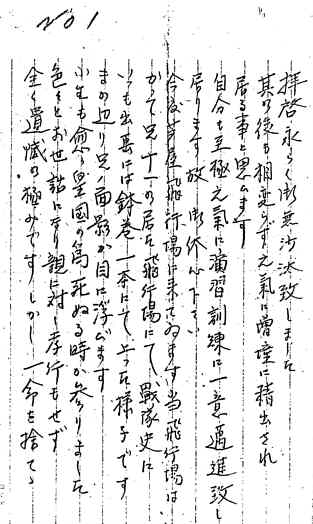 No 1
拝啓 永らく御無沙汰致しました
其の後も相変らず元氣に増産に精出され
居る事と思ひます
自分も至極元氣に演習訓練に一意邁進致し
居ります故 御休心下さい
今度芦屋飛行場に来てゐます当飛行場は
かつて兄 の居た飛行場にて、戦隊史に
いつも出 には鉢巻一本にて よつた様子です
まのあたり兄の面影が目に浮びます
小生も愈々皇国の為死ぬる時が参りました
色々とお世話になり親に対し孝行もせず
全く遺憾の極みです しかし一命を捨てゝ